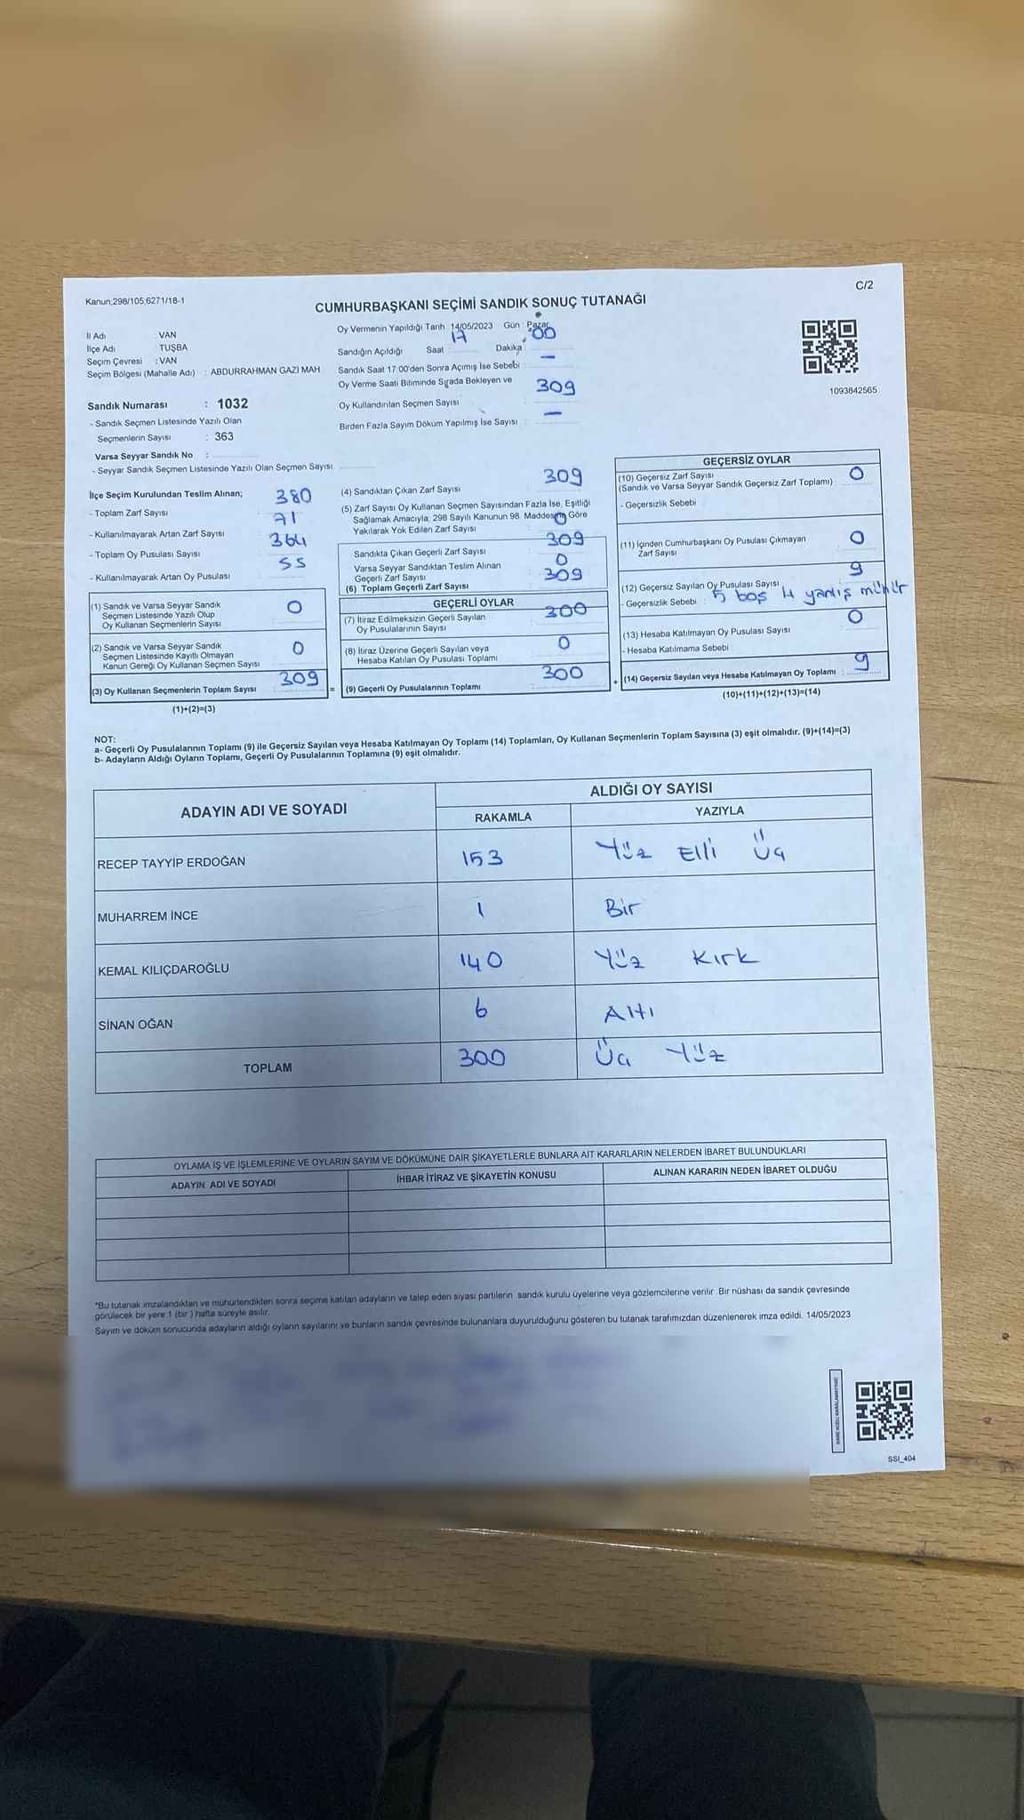 Kanun;298/105,6271/18-1
C/2
CUMHURBAŞKANI SEÇİMİ SANDIK SONUÇ TUTANAĞI
İl Adı VAN
İlçe Adı TUŞBA
Seçim Çevresi : VAN
Seçim Bölgesi (Mahalle Adı) : ABDURRAHMAN GAZİ MAH
Sandık Numarası : 1032
- Sandık Seçmen Listesinde Yazılı Olan
Seçmenlerin Sayısı : 363
Varsa Seyyar Sandık No :
- Seyyar Sandık Seçmen Listesinde Yazılı Olan Seçmen Sayısı
Oy Vermenin Yapıldığı Tarih 14/05/2023 Gün : Pazar
Sandığın Açıldığı Saat 17 Dakika 00
Sandık Saat 17:00'den Sonra Açımış İse Sebebi : —
Oy Verme Saati Bitiminde Sırada Bekleyen ve
Oy Kullandırılan Seçmen Sayısı 309
Birden Fazla Sayım Döküm Yapılmış İse Sayısı : —
1093842565
İlçe Seçim Kurulundan Teslim Alınan;
- Toplam Zarf Sayısı 380
- Kullanılmayarak Artan Zarf Sayısı 71
- Toplam Oy Pusulası Sayısı 364
- Kullanılmayarak Artan Oy Pusulası 55
(1) Sandık ve Varsa Seyyar Sandık
Seçmen Listesinde Yazılı Olup
Oy Kullanan Seçmenlerin Sayısı 0
(2) Sandık ve Varsa Seyyar Sandık
Seçmen Listesinde Kayıtlı Olmayan
Kanun Gereği Oy Kullanan Seçmen Sayısı 0
(3) Oy Kullanan Seçmenlerin Toplam Sayısı 309
(1)+(2)=(3)
(4) Sandıktan Çıkan Zarf Sayısı 309
(5) Zarf Sayısı Oy Kullanan Seçmen Sayısından Fazla İse, Eşitliği
Sağlamak Amacıyla; 298 Sayılı Kanunun 98. Maddesine Göre
Yakılarak Yok Edilen Zarf Sayısı 0
Sandıkta Çıkan Geçerli Zarf Sayısı 309
Varsa Seyyar Sandıktan Teslim Alınan
Geçerli Zarf Sayısı 0
(6) Toplam Geçerli Zarf Sayısı 309
GEÇERLİ OYLAR
(7) İtiraz Edilmeksizin Geçerli Sayılan
Oy Pusulalarının Sayısı 300
(8) İtiraz Üzerine Geçerli Sayılan veya
Hesaba Katılan Oy Pusulası Toplamı 0
= (9) Geçerli Oy Pusulalarının Toplamı 300
GEÇERSİZ OYLAR
(10) Geçersiz Zarf Sayısı 0
(Sandık ve Varsa Seyyar Sandık Geçersiz Zarf Toplamı)
- Geçersizlik Sebebi
(11) İçinden Cumhurbaşkanı Oy Pusulası Çıkmayan
Zarf Sayısı 0
(12) Geçersiz Sayılan Oy Pusulası Sayısı 9
- Geçersizlik Sebebi : 5 boş 4 yanlış mühür
(13) Hesaba Katılmayan Oy Pusulası Sayısı 0
- Hesaba Katılmama Sebebi
+ (14) Geçersiz Sayılan veya Hesaba Katılmayan Oy Toplamı 9
(10)+(11)+(12)+(13)=(14)
NOT:
a- Geçerli Oy Pusulalarının Toplamı (9) ile Geçersiz Sayılan veya Hesaba Katılmayan Oy Toplamı (14) Toplamları, Oy Kullanan Seçmenlerin Toplam Sayısına (3) eşit olmalıdır. (9)+(14)=(3)
b- Adayların Aldığı Oyların Toplamı, Geçerli Oy Pusulalarının Toplamına (9) eşit olmalıdır.
ADAYIN ADI VE SOYADI ALDIĞI OY SAYISI
RAKAMLA YAZIYLA
RECEP TAYYİP ERDOĞAN 153 Yüz Elli Üç
MUHARREM İNCE 1 Bir
KEMAL KILIÇDAROĞLU 140 Yüz Kırk
SİNAN OĞAN 6 Altı
TOPLAM 300 Üç Yüz
OYLAMA İŞ VE İŞLEMLERİNE VE OYLARIN SAYIM VE DÖKÜMÜNE DAİR ŞİKAYETLERLE BUNLARA AİT KARARLARIN NELERDEN İBARET BULUNDUKLARI
ADAYIN ADI VE SOYADI İHBAR İTİRAZ VE ŞİKAYETİN KONUSU ALINAN KARARIN NEDEN İBARET OLDUĞU
*Bu tutanak imzalandıktan ve mühürlendikten sonra seçime katılan adayların ve talep eden siyasi partilerin sandık kurulu üyelerine veya gözlemcilerine verilir. Bir nüshası da sandık çevresinde
görülecek bir yere 1 (bir) hafta süreyle asılır.
Sayım ve döküm sonucunda adayların aldığı oyların sayılarını ve bunların sandık çevresinde bulunanlara duyurulduğunu gösteren bu tutanak tarafımızdan düzenlenerek imza edildi. 14/05/2023
SSI_404